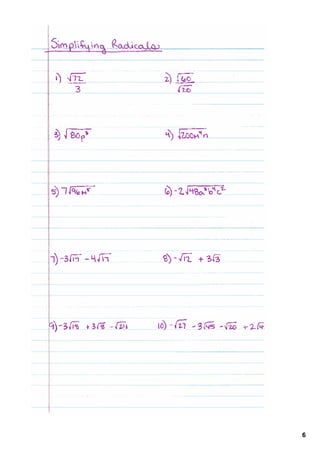 Simplifying Radicals
1) √72 / 3 2) √60 / √20
3) √80p³ 4) √200m⁴n
5) 7√96m⁵ 6) -2√48a³b⁴c²
7) -3√17 - 4√17 8) -√12 + 3√3
9) -3√18 + 3√8 - √24 10) -√27 - 3√45 - √20 + 2√4
6